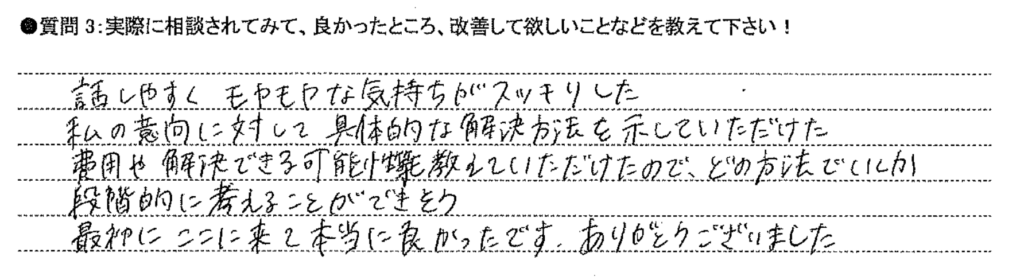 ●質問3:実際に相談されてみて、良かったところ、改善して欲しいことなどを教えて下さい！
話しやすく モヤモヤな気持ちがスッキリした
私の意向に対して 具体的な解決方法を示していただけた
費用や解決できる可能性も教えていただけたので、どの方法でいくか
段階的に考えることができそう
最初に ここに来て本当に良かったです. ありがとうございました